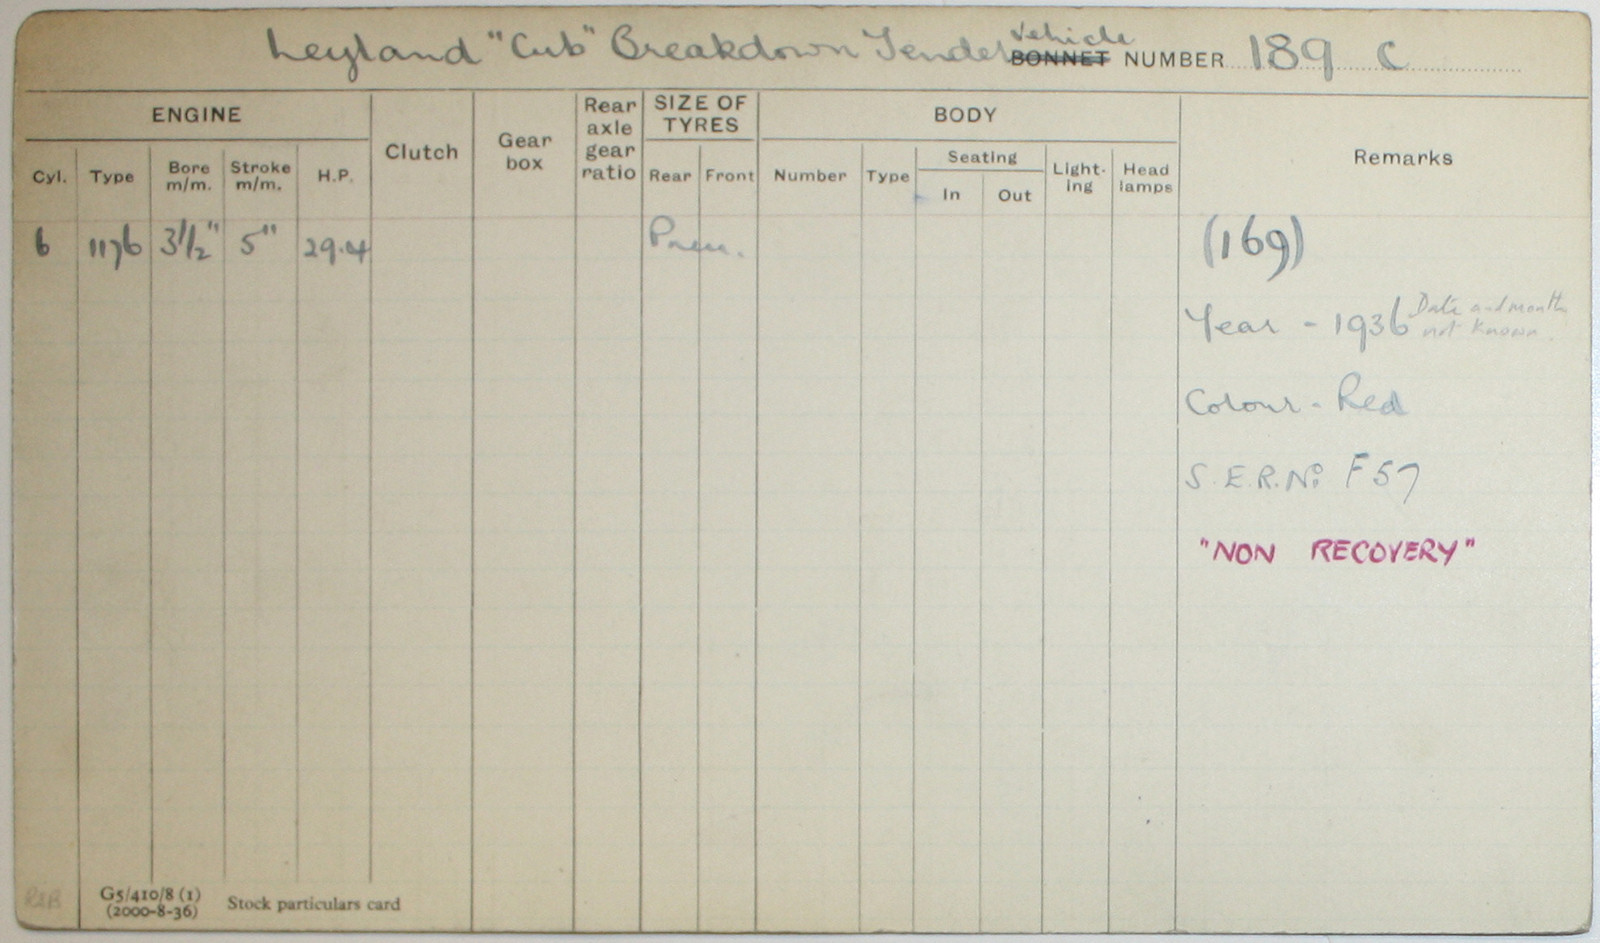 Leyland "Cub" Breakdown Tender Vehicle BONNET NUMBER 189 C
ENGINE
Clutch
Gear box
Rear axle gear ratio
SIZE OF TYRES
BODY
Remarks
Cyl. Type Bore m/m. Stroke m/m. H.P.
Rear Front
Number Type
Seating
In Out
Light-ing
Head lamps
6 1176 3 1/2" 5" 29.4 Pneu. (169)
Year - 1936 Date and month not known
Colour - Red
S.E.R. No F57
"NON RECOVERY"
G5/410/8 (1)
(2000-8-36)
Stock particulars card